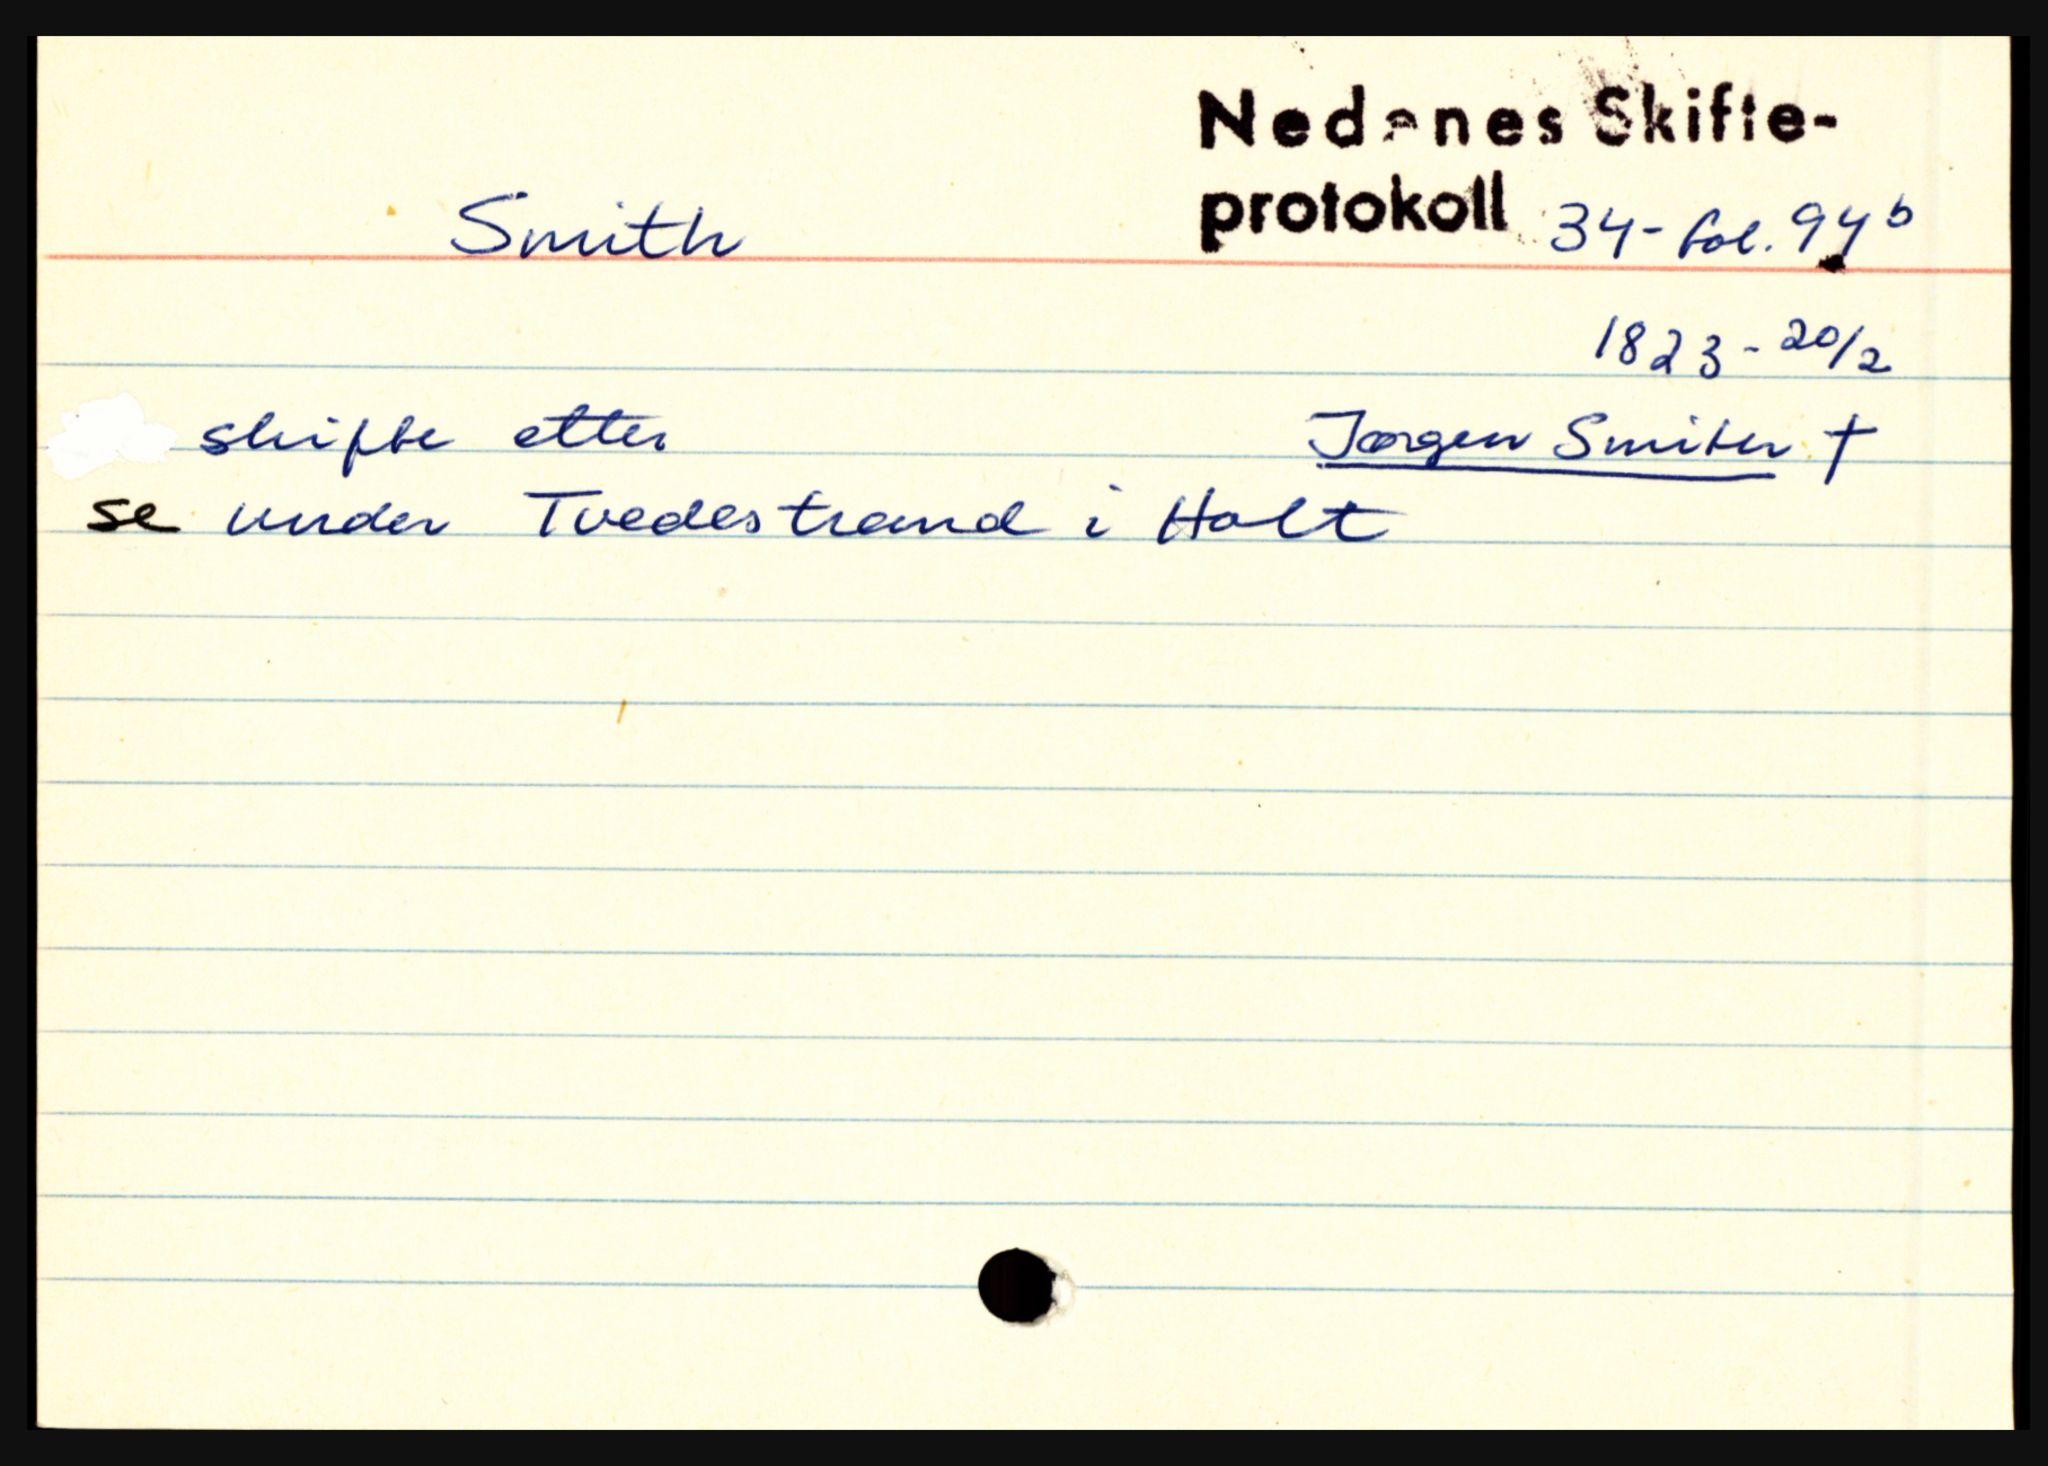 Nedenes Skifte-
Smith protokoll 34- fol. 94 b
1823 - 20/2
skifte etter Jørgen Smith †
se under Tvedestrand i Holt